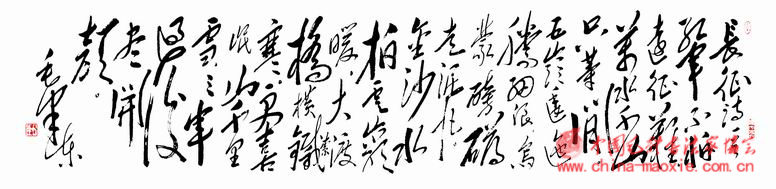 長征詩
紅軍不怕
遠征難
萬水千山
只等閒
五嶺逶迤
騰細浪烏
蒙磅礴
走泥丸
金沙水
柏雲崖
暖大渡
橋橫鐵索
寒更喜
岷山千里
雪三軍
過後
盡開
顏
毛澤東
www.china-maoxie.com.cn